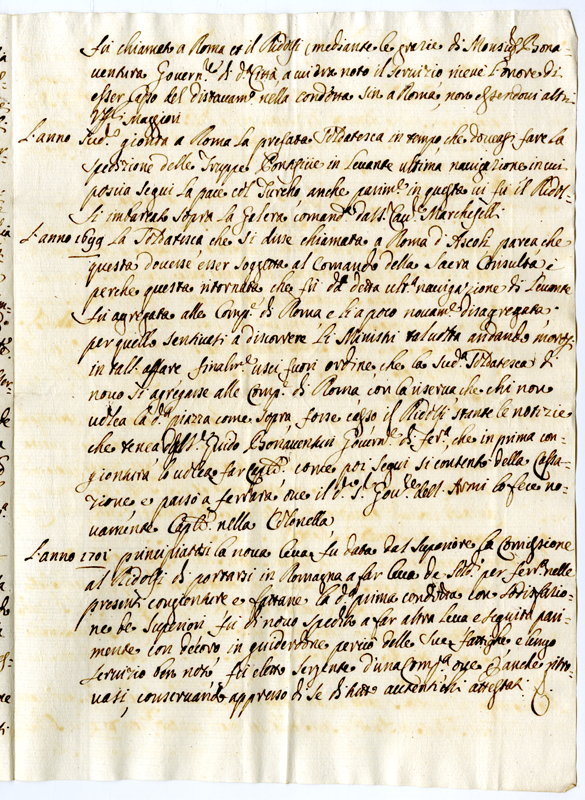 fù chiamato a Roma et il Ridolfi, mediante le grazie di Monsig.r Bona-
ventura Govern.re di d.a Città a cui era noto il servizio riceve l'onore di
esser Capo del distacam.to nella condotta sin a Roma, non essendovi altri
Uff.li Maggiori
L'anno Sud.o gionta a Roma la prefata Soldatesca in tempo che doveasi fare la
Spedizione delle Truppe Pontificie in Levante ultima navigazione in cui
poscia seguì la pace col Turcho anche parim.te in questa vi fù il Ridol-
fi imbarcato sopra la Galera comand.a dall' Cav.r Marcheselli
L'anno 1699 la Soldatesca che si disse chiamata a Roma d'Ascoli parea che
questa dovesse esser soggetta al Comando della Sacra Consulta è
perche questa ritornata che fù da detta ult.a navigazione di Levante
fù agregata alle Comp.e di Roma e lì a poco novam.te disagregata
per quello sentivasi a discorrere li Ministri talvolta andando
in tall' affare finalm.te uscì fuori ordine, che la Sud.a Soldatesca di
novo si agregasse alle Comp.e di Roma con la riserva che chi non
volea la d.a piazza come sopra fosse casso il Ridolfi stante le notizie
che tenea dall' S. Guido Bonaventuri Govern.re di Fer.a che in prima con-
giontura lo volea far come poi seguì si contentò della Cassa-
zione e passò a ferrara ove il d.o S. Gov.re dell' Armi lo fece no-
vamente nella Colonella
L'anno 1701 principiatasi la nova leva fù data dal Superiore la Comissione
al Ridolfi di portarsi in Romagna a far leva de Sold.i per ferr.a nelle
presenti congionture e fattane la d.a prima condotta con sodisfazio-
ne de Superiori fù di novo spedito a far altra leva e seguitò pari-
mente con decoro in guiderdone perciò delle sue fattighe e lungo
servizio ben noto fù eletto Sergente d'una Comp.a ove anche ritro-
vasi, conservando appresso di se di tutto autentichi attestati